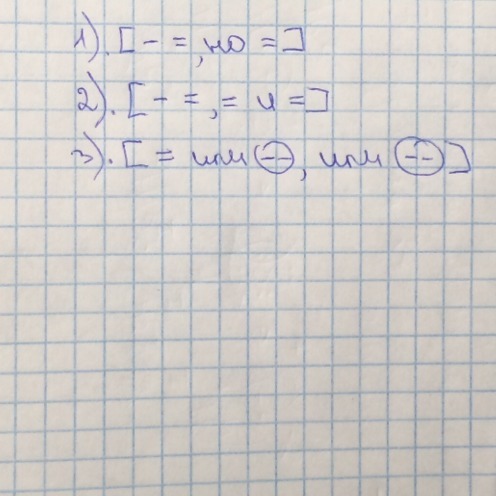 1). [ - = , но = ]
2). [ - = , = и = ]
3). [ = или (--) , или (--) ]